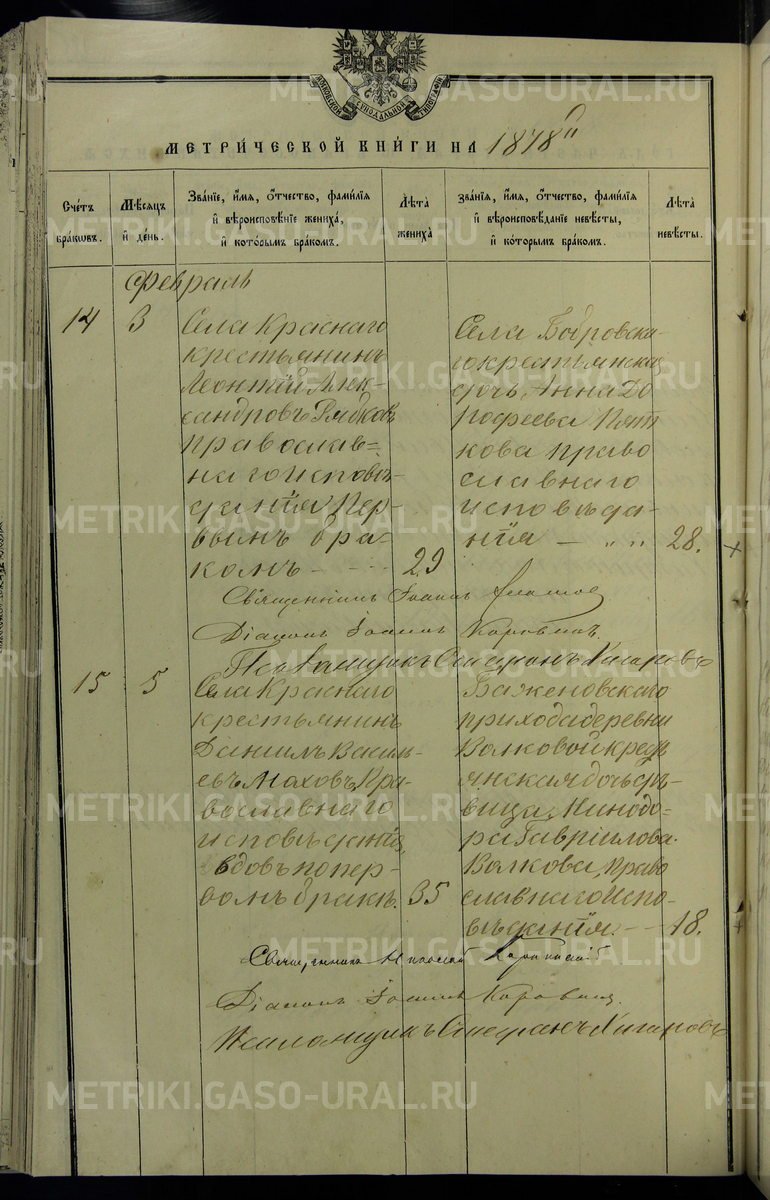 МОСКОВСКОЙ СУНОДАЛЬНОЙ ТИПОГРАФІИ
МЕТРИ́ЧЕСКОЙ КНИ́ГИ НА 1878
Сче́тъ бра́кωвъ.
Мѣ́сяцъ и҆ де́нь.
Зва́ніе, и҆́мя, ѻ҆́тчество, фами́лія и҆ вѣроисповѣ́ніе жениха̀, и҆ кото́рымъ бра́комъ.
Лѣ́та жениха̀
зва́нія, и҆́мя, ѻ҆́тчество, фами́лія и҆ вѣроисповѣ́даніе невѣ́сты, и҆ кото́рымъ бра́комъ.
Лѣ́та невѣ́сты.
Февраль
14
3
Села Краснаго
крестьянинъ
Леонтій Алек-
сандровъ Рябковъ
православ=
наго исповѣ-
данія Пер-
вымъ бра-
комъ
29
Села Бобровска-
го крестьянская
дочь, Анна До
рофеева Пят
кова право
славнаго
исповѣда-
нія — „ „
28.
Священникъ Іоаннъ
Діаконъ Іоаннъ Коровинъ.
Псаломщикъ Стефанъ Хигаровъ
15
5
Села Краснаго
крестьянинъ
Даніилъ Василь-
евъ Маховъ, Пра-
вославнаго
исповѣданія,
вдовъ попер-
вомъ бракѣ.
35
Баженовскаго
прихода деревни
Волковой кресть
янская дочь дѣ-
вица, Минодо-
ра Гавріилова.
Волкова, право
славнаго Испо-
вѣданія. —
18.
Священникъ Николай
Діаконъ Іоаннъ Коровинъ.
Псаломщикъ Стефанъ Хигаровъ
METRIKI.GASO-URAL.RU